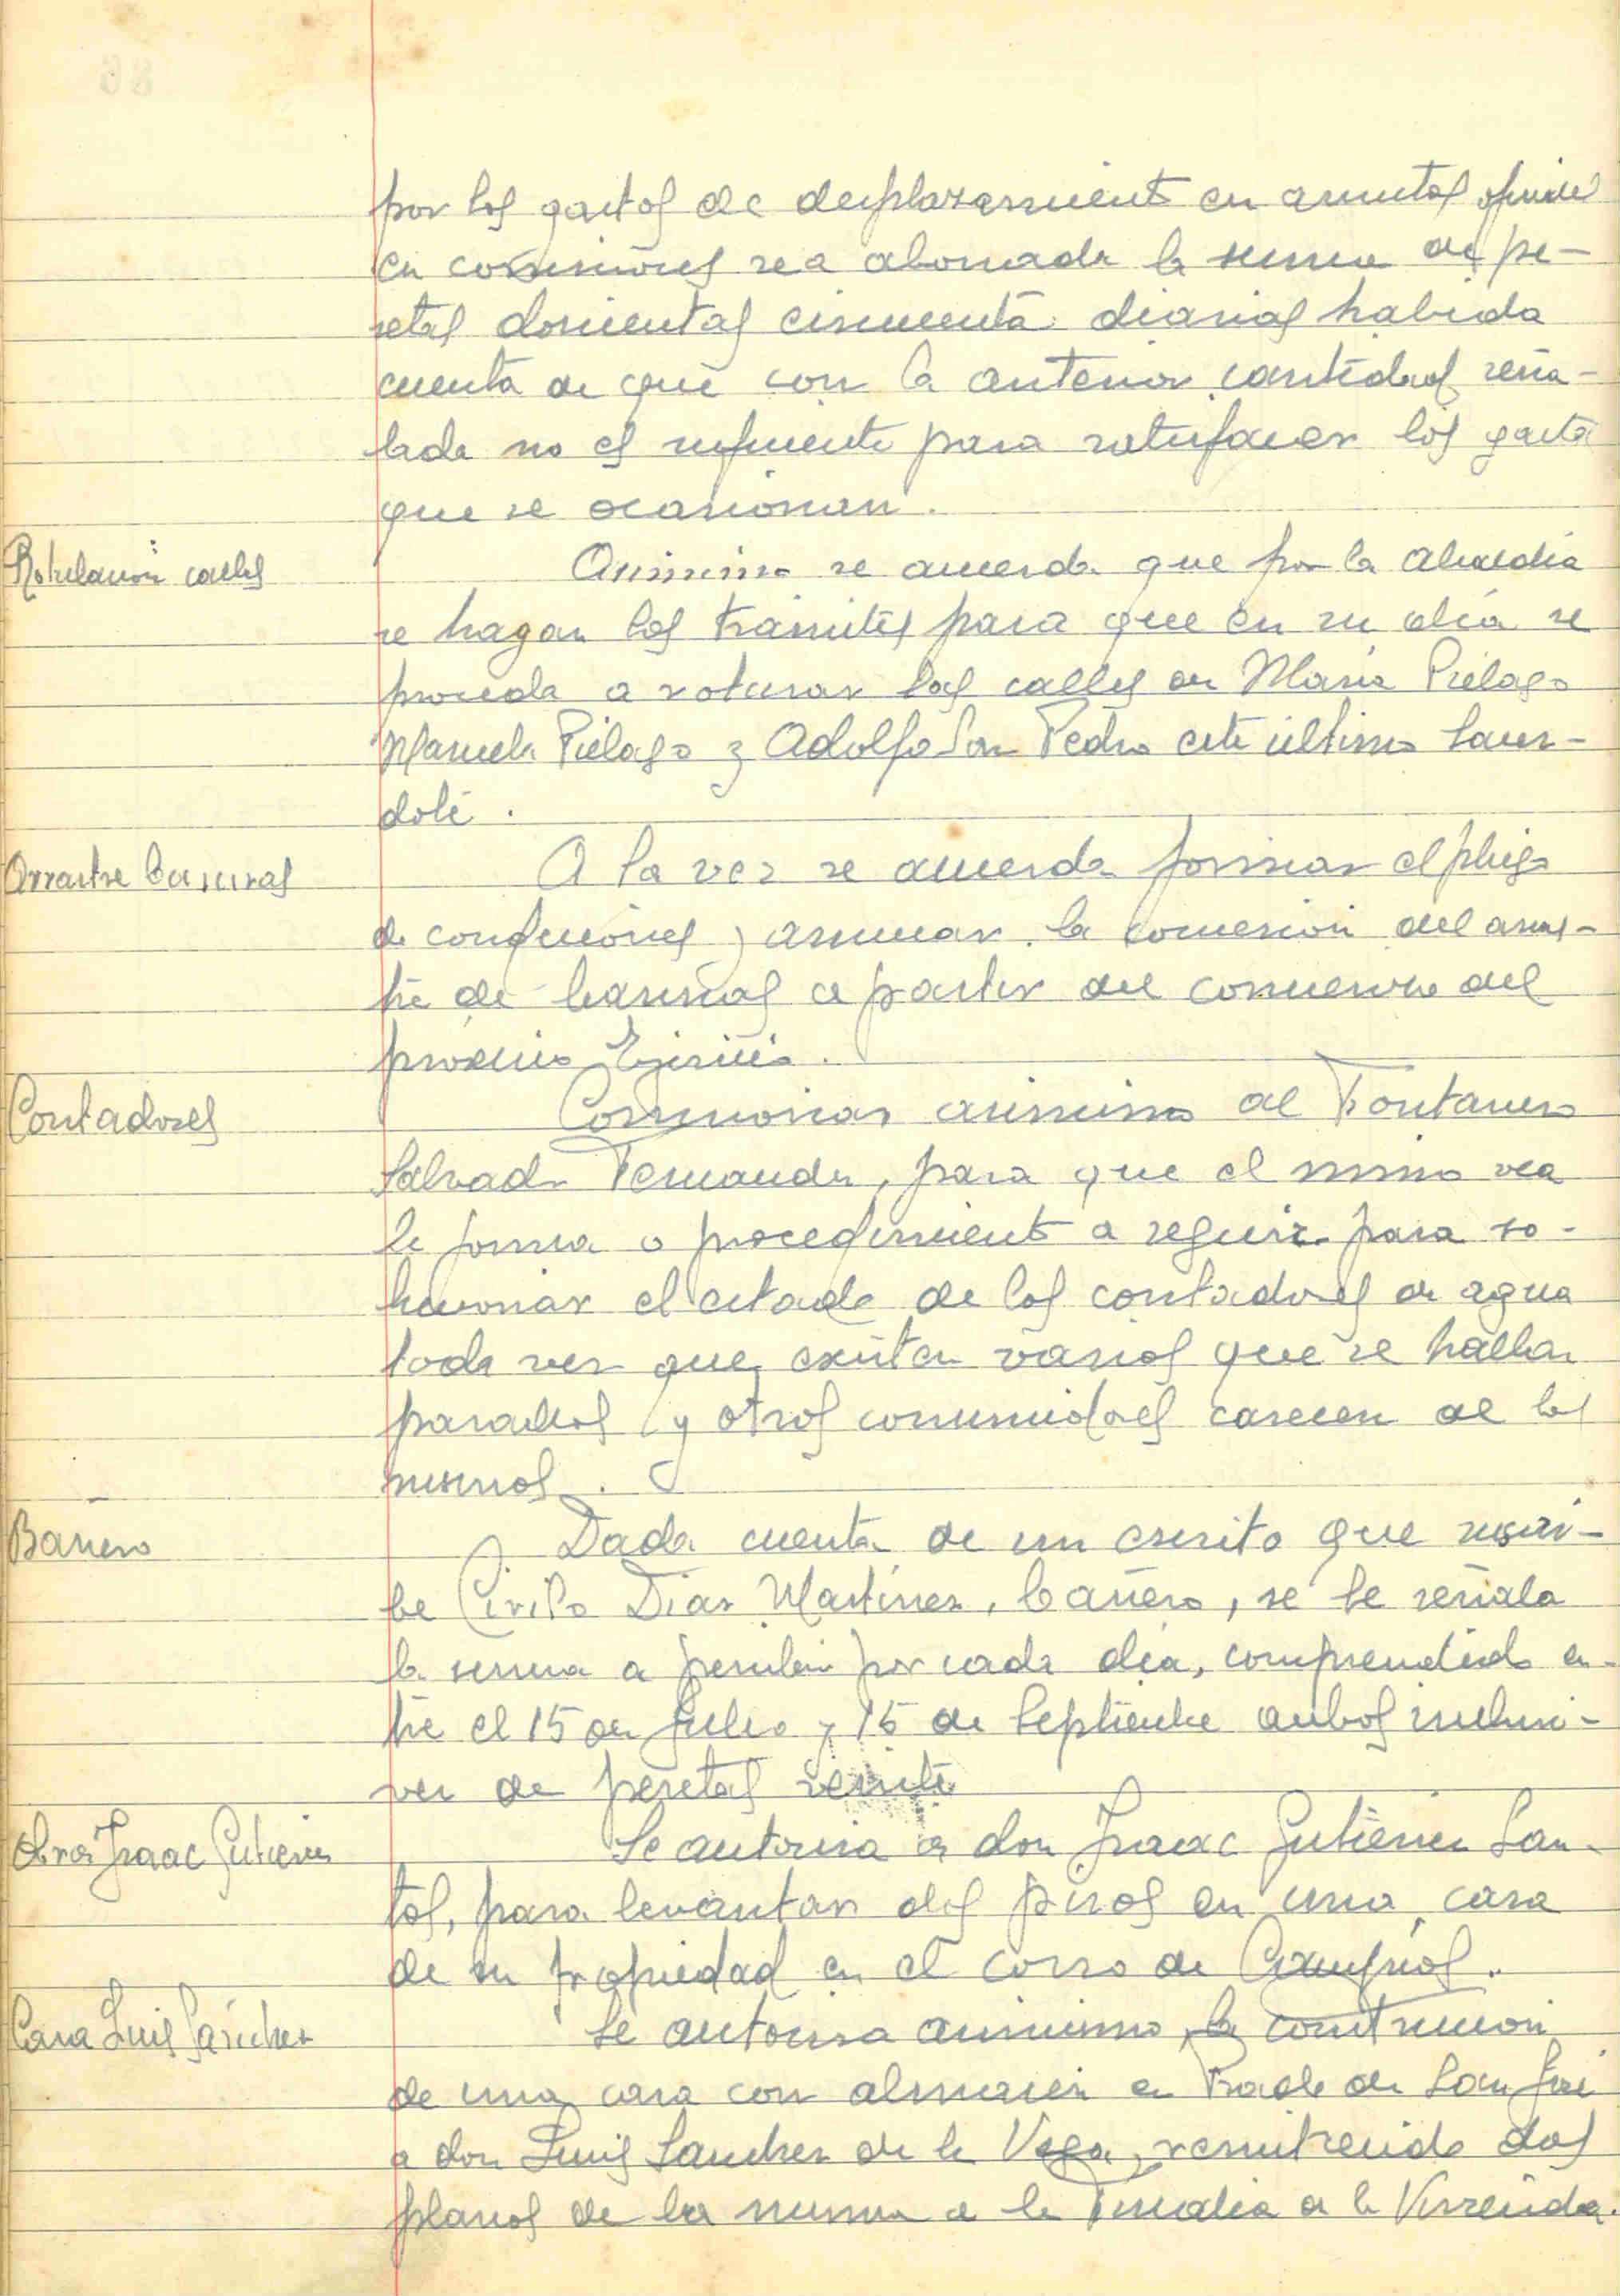 por los gastos de desplazamiento en asuntos oficiales
en comisiones sea abonada la suma de pe-
setas doscientas cincuenta diarias habida
cuenta de que con la anterior cantidad seña-
lada no es suficiente para satisfacer los gastos
que se ocasionan.
Rotulación calles
Asimismo se acuerda que por la Alcaldía
se hagan los trámites para que en su día se
proceda a rotular las calles de María Piélago
Manuela Piélago y Adolfo San Pedro este último Sacer-
dote.
Arrastre basuras
A la vez se acuerda formar el pliego
de condiciones y anunciar la concesión del arras-
tre de basuras a partir del comienzo del
próximo Ejercicio.
Contadores
Comisionar asimismo al Fontanero
Salvador Fernandez, para que el mismo vea
la forma o procedimiento a seguir para so-
lucionar el estado de los contadores de agua
toda vez que existen varios que se hallan
parados y otros consumidores carecen de los
mismos.
Bañero
Dada cuenta de un escrito que suscri-
be Cirilo Diaz Martínez, bañero, se le señala
la suma a percibir por cada día, comprendido en-
tre el 15 de Julio y 15 de Septiembre ambos inclusi-
ves de pesetas veinte
Obras Isaac Gutierrez
Se autoriza a don Isaac Gutierrez San-
tos, para levantar dos pisos en una casa
de su propiedad en el corro de Campíos.
Casa Luis Sánchez
Se autoriza asimismo la construccion
de una casa con almacen en Prado de San José
a don Luis Sanchez de la Vega, remitiendo los
planos de la misma a la Fiscalía de la Vivienda.